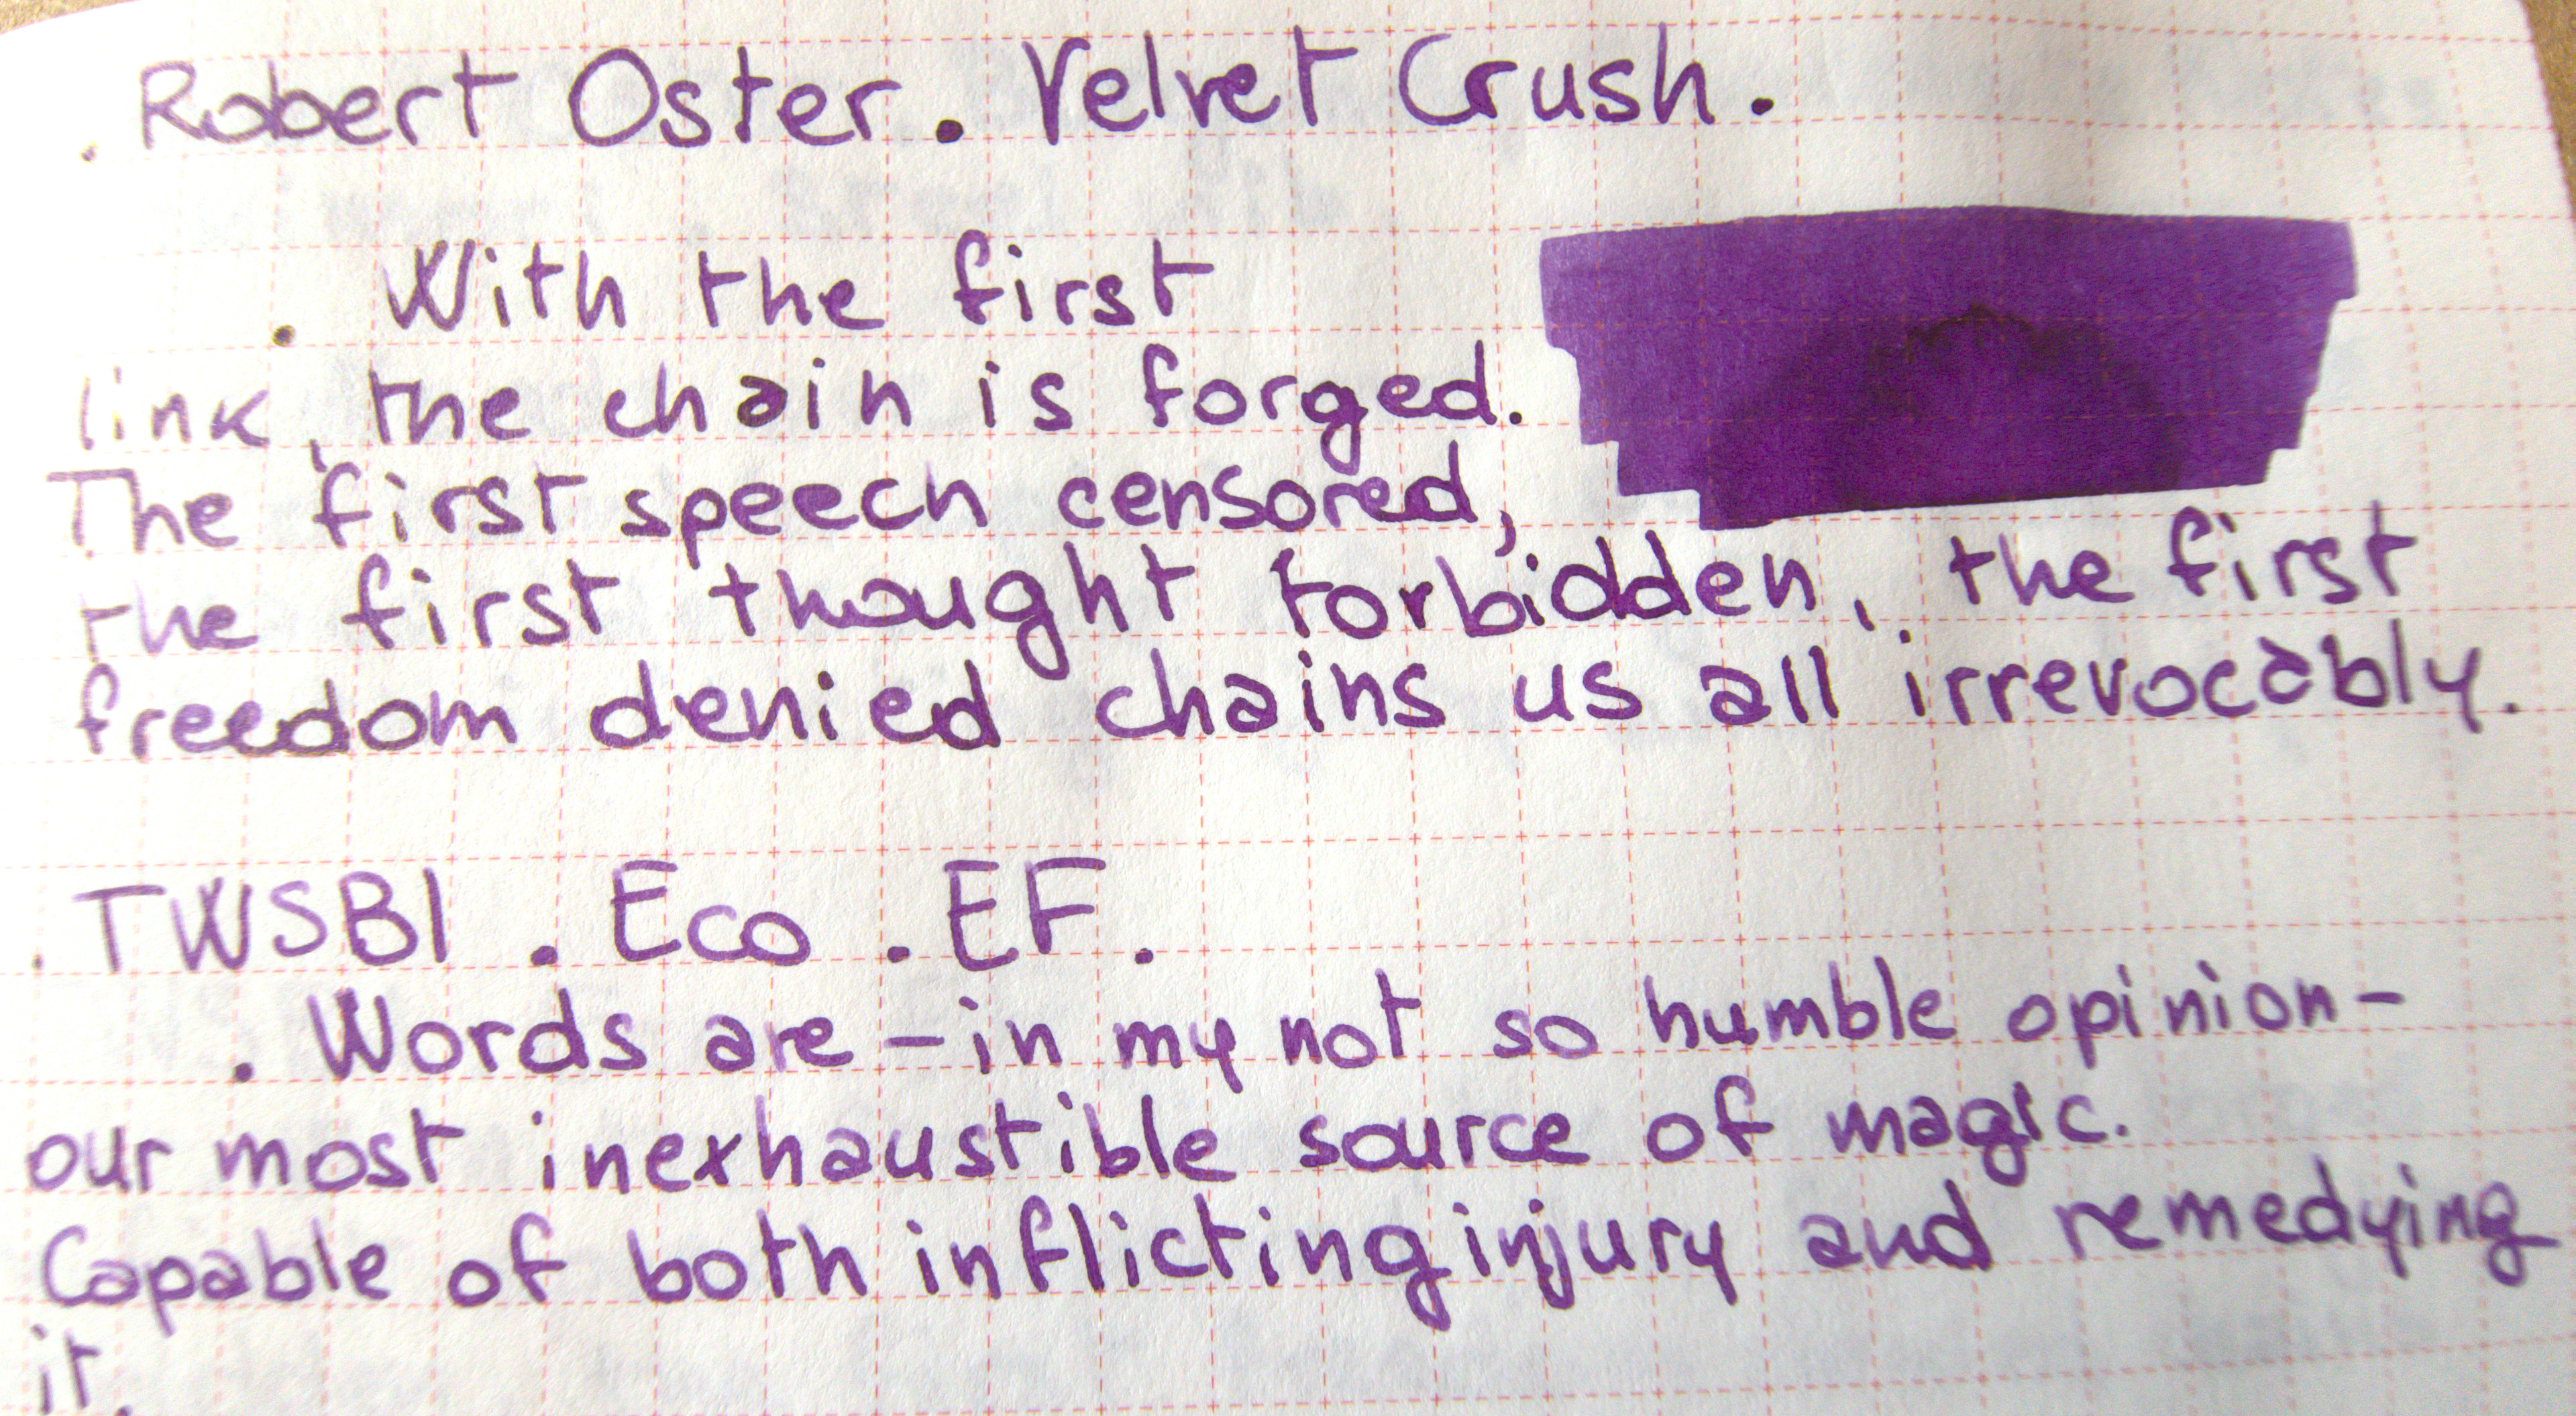 . Robert Oster. Velvet Crush.
. With the first
link, the chain is forged.
The first speech censored,
the first thought forbidden, the first
freedom denied chains us all irrevocably.
. TWSBI . Eco . EF.
. Words are - in my not so humble opinion -
our most inexhaustible source of magic.
Capable of both inflicting injury and remedying
it.